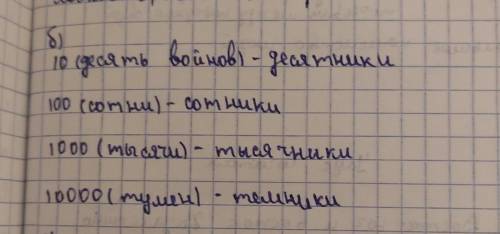 б)
10 (десять войнов) - десятники
100 (сотни) - сотники
1000 (тысячи) - тысячники
10000 (тумен) - темники